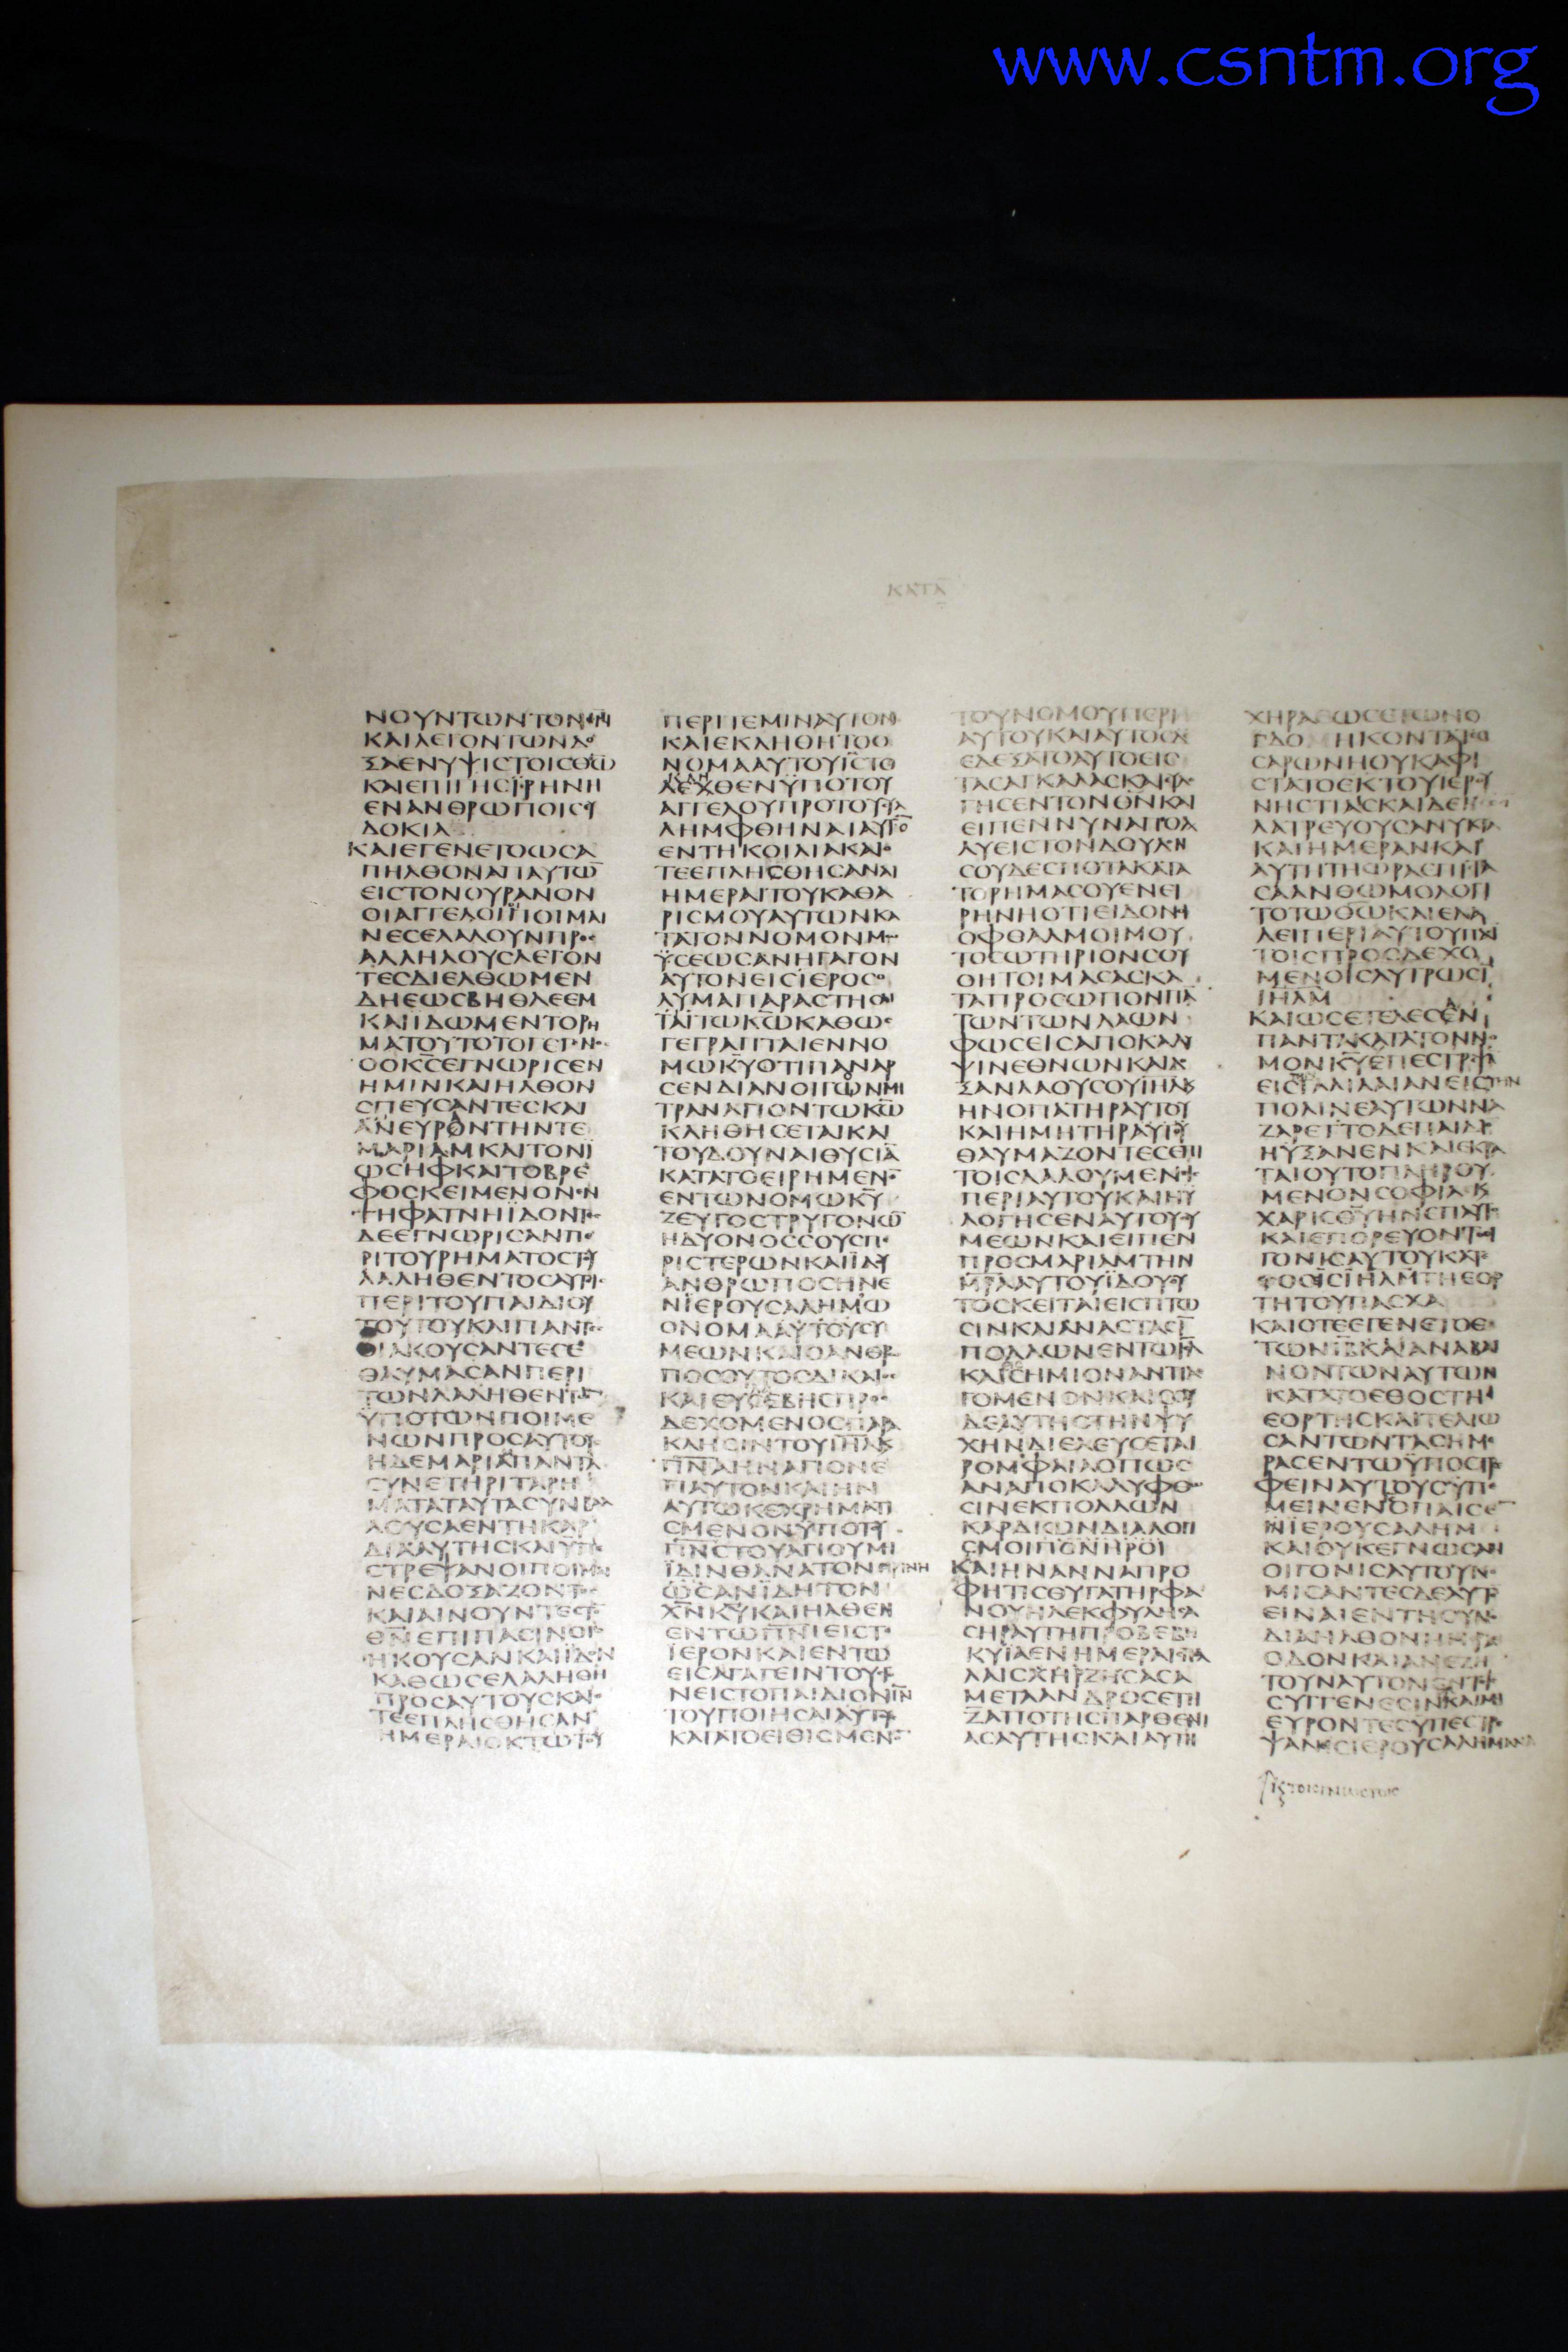 www.csntm.org
ΚΑΤΑ
ΝΟΥΝΤΩΝΤΟΝ
ΚΑΙΛΕΓΟΝΤΩΝΔΟ
ΞΑΕΝΥΨΙCΤΟΙCΘΩ
ΚΑΙΕΠΙΓΗCΪΡΗΝΗ
ΕΝΑΝΘΡΩΠΟΙCΕΥ
ΔΟΚΙΑ
ΚΑΙΕΓΕΝΕΤΟΩCΑ
ΠΗΛΘΟΝΑΠΑΥΤΩ
ΕΙCΤΟΝΟΥΡΑΝΟΝ
ΟΙΑΓΓΕΛΟΙ
ΝΕCΕΛΑΛΟΥΝΠΡΟC
ΑΛΛΗΛΟΥCΛΕΓΟΝ
ΤΕCΔΙΕΛΘΩΜΕΝ
ΔΗΕΩCΒΗΘΛΕΕΜ
ΚΑΙΙΔΩΜΕΝΤΟΡΗ
ΜΑΤΟΥΤΟΤΟΓΕΓΟΝΟC
ΟΟΚCΕΓΝΩΡΙCΕΝ
ΗΜΙΝΚΑΙΗΛΘΟΝ
CΠΕΥCΑΝΤΕCΚΑΙ
ΑΝΕΥΡΟΝΤΗΝΤΕ
ΜΑΡΙΑΜΚΑΙΤΟΝΙ
ΩCΗΦΚΑΙΤΟΒΡΕ
ΦΟCΚΕΙΜΕΝΟΝΕΝ
ΤΗΦΑΤΝΗΪΔΟΝΤΕC
ΔΕΕΓΝΩΡΙCΑΝΠΕ
ΡΙΤΟΥΡΗΜΑΤΟCΤΟΥ
ΛΑΛΗΘΕΝΤΟCΑΥΤΟΙC
ΠΕΡΙΤΟΥΠΑΙΔΙΟΥ
ΤΟΥΤΟΥΚΑΙΠΑΝΤΕC
ΟΙΑΚΟΥCΑΝΤΕCΕ
ΘΑΥΜΑCΑΝΠΕΡΙ
ΤΩΝΛΑΛΗΘΕΝΤΩ
ΫΠΟΤΩΝΠΟΙΜΕ
ΝΩΝΠΡΟCΑΥΤΟΥC
ΗΔΕΜΑΡΙΑΠΑΝΤΑ
CΥΝΕΤΗΡΙΤΑΡΗ
ΜΑΤΑΤΑΥΤΑCΥΝΒΑ
ΛΟΥCΑΕΝΤΗΚΑΡ
ΔΙΑΑΥΤΗCΚΑΙΥΠΕ
CΤΡΕΨΑΝΟΙΠΟΙΜΕ
ΝΕCΔΟΞΑΖΟΝΤΕC
ΚΑΙΑΙΝΟΥΝΤΕCΤΟΝ
ΘΝΕΠΙΠΑCΙΝΟΙC
ΗΚΟΥCΑΝΚΑΙΪΔΟΝ
ΚΑΘΩCΕΛΑΛΗΘΗ
ΠΡΟCΑΥΤΟΥCΚΑΙΟ
ΤΕΕΠΛΗCΘΗCΑΝ
ΗΜΕΡΑΙΟΚΤΩΤΟΥ
ΠΕΡΙΤΕΜΙΝΑΥΤΟΝ
ΚΑΙΕΚΛΗΘΗΤΟΟ
ΝΟΜΑΑΥΤΟΥΪCΤΟ
ΛΕΧΘΕΝΫΠΟΤΟΥ
ΑΓΓΕΛΟΥΠΡΟΤΟΥCΥΛ
ΛΗΜΦΘΗΝΑΙΑΥΤΟ
ΕΝΤΗΚΟΙΛΙΑΚΑΙΟ
ΤΕΕΠΛΗCΘΗCΑΝΑΙ
ΗΜΕΡΑΙΤΟΥΚΑΘΑ
ΡΙCΜΟΥΑΥΤΩΝΚΑ
ΤΑΤΟΝΝΟΜΟΝΜΩ
ΫCΕΩCΑΝΗΓΑΓΟΝ
ΑΥΤΟΝΕΙCΪΕΡΟCΟ
ΛΥΜΑΠΑΡΑCΤΗCΑΙ
ΤΩΚΩΚΑΘΩC
ΓΕΓΡΑΠΤΑΙΕΝΝΟ
ΜΩΚΥΟΤΙΠΑΝΑΡ
CΕΝΔΙΑΝΟΙΓΩΝΜΗ
ΤΡΑΝΑΓΙΟΝΤΩΚΩ
ΚΛΗΘΗCΕΤΑΙΚΑΙ
ΤΟΥΔΟΥΝΑΙΘΥCΙΑ
ΚΑΤΑΤΟΕΙΡΗΜΕΝΟ
ΕΝΤΩΝΟΜΩΚΥ
ΖΕΥΓΟCΤΡΥΓΟΝΩ
ΗΔΥΟΝΟCCΟΥCΠΕ
ΡΙCΤΕΡΩΝΚΑΙΪΔΟΥ
ΑΝΘΡΩΠΟCΗΝΕ
ΝΪΕΡΟΥCΑΛΗΜΩ
ΟΝΟΜΑΑΥΤΟΥCΥ
ΜΕΩΝΚΑΙΟΑΝΘΡΩ
ΠΟCΟΥΤΟCΔΙΚΑΙΟC
ΚΑΙΕΥCΕΒΗCΠΡΟC
ΔΕΧΟΜΕΝΟCΠΑΡΑ
ΚΛΗCΙΝΤΟΥΙΗΛΚ
ΠΝΑΗΝΑΓΙΟΝΕ
ΠΑΥΤΟΝΚΑΙΗΝ
ΑΥΤΩΚΕΧΡΗΜΑΤΙ
CΜΕΝΟΝΫΠΟΤΟΥ
ΠΝCΤΟΥΑΓΙΟΥΜΗ
ΪΔΙΝΘΑΝΑΤΟΝΠΡΙΝΗ
ΩCΑΝΪΔΗΤΟΝ
ΧΝΚΥΚΑΙΗΛΘΕΝ
ΕΝΤΩΠΝΙΕΙCΤΟ
ΪΕΡΟΝΚΑΙΕΝΤΩ
ΕΙCΑΓΑΓΕΙΝΤΟΥCΓΟ
ΝΕΙCΤΟΠΑΙΔΙΟΝΙΝ
ΤΟΥΠΟΙΗCΑΙΑΥΤΟΥC
ΚΑΤΑΤΟΕΙΘΙCΜΕΝΟ
ΤΟΥΝΟΜΟΥΠΕΡΙ
ΑΥΤΟΥΚΑΙΑΥΤΟCΕ
ΔΕΞΑΤΟΑΥΤΟΕΙC
ΤΑCΑΓΚΑΛΑCΚΑΙΕΥΛΟ
ΓΗCΕΝΤΟΝΘΝΚΑΙ
ΕΙΠΕΝΝΥΝΑΠΟΛ
ΛΥΕΙCΤΟΝΔΟΥΛΟΝ
CΟΥΔΕCΠΟΤΑΚΑΤΑ
ΤΟΡΗΜΑCΟΥΕΝΕΙ
ΡΗΝΗΟΤΙΕΙΔΟΝΟΙ
ΟΦΘΑΛΜΟΙΜΟΥ
ΤΟCΩΤΗΡΙΟΝCΟΥ
ΟΗΤΟΙΜΑCΑCΚΑ
ΤΑΠΡΟCΩΠΟΝΠΑ
ΤΩΝΤΩΝΛΑΩΝ
ΦΩCΕΙCΑΠΟΚΑΛΥ
ΨΙΝΕΘΝΩΝΚΑΙΔΟ
ΞΑΝΛΑΟΥCΟΥΪΗΛΚ
ΗΝΟΠΑΤΗΡΑΥΤΟΥ
ΚΑΙΗΜΗΤΗΡΑΥΤΟΥ
ΘΑΥΜΑΖΟΝΤΕCΕΠΙ
ΤΟΙCΛΑΛΟΥΜΕΝΟΙC
ΠΕΡΙΑΥΤΟΥΚΑΙΗΥ
ΛΟΓΗCΕΝΑΥΤΟΥCΥ
ΜΕΩΝΚΑΙΕΙΠΕΝ
ΠΡΟCΜΑΡΙΑΜΤΗΝ
ΜΡΑΑΥΤΟΥΪΔΟΥΟΥ
ΤΟCΚΕΙΤΑΙΕΙCΠΤΩ
CΙΝΚΑΙΑΝΑCΤΑCΙ
ΠΟΛΛΩΝΕΝΤΩΙΗΛ
ΚΑΙCΗΜΙΟΝΑΝΤΙΛΕ
ΓΟΜΕΝΟΝΚΑΙCΟΥ
ΔΕΑΥΤΗCΤΗΝΨΥ
ΧΗΝΔΙΕΛΕΥCΕΤΑΙ
ΡΟΜΦΑΙΑΟΠΩC
ΑΝΑΠΟΚΑΛΥΦΘΩ
CΙΝΕΚΠΟΛΛΩΝ
ΚΑΡΔΙΩΝΔΙΑΛΟΓΙ
CΜΟΙΠΟΝΗΡΟΙ
ΚΑΙΗΝΑΝΝΑΠΡΟ
ΦΗΤΙCΘΥΓΑΤΗΡΦΑ
ΝΟΥΗΛΕΚΦΥΛΗCΑ
CΗΡΑΥΤΗΠΡΟΒΕΒΗ
ΚΥΪΑΕΝΗΜΕΡΑΙCΠΟΛ
ΛΑΙCΧΗΡΖΗCΑCΑ
ΜΕΤΑΑΝΔΡΟCΕΤΗ
ΖΑΠΟΤΗCΠΑΡΘΕΝΙ
ΑCΑΥΤΗCΚΑΙΑΥΤΗ
ΧΗΡΑ
CΑΡΩΝΗΟΥΚΑΦΙ
CΤΑΤΟΕΚΤΟΥΙΕΡΟΥ
ΝΗCΤΙΑΙCΚΑΙΔΕΗ
ΛΑΤΡΕΥΟΥCΑΝΥΚΤΑ
ΚΑΙΗΜΕΡΑΝΚΑΙ
ΑΥΤΗΤΗΩΡΑΕΠΙCΤΑ
CΑΑΝΘΩΜΟΛΟΓΙ
ΤΟΤΩΘΩΚΑΙΕΛΑ
ΛΕΙΠΕΡΙΑΥΤΟΥΠΑCΙ
ΤΟΙCΠΡΟCΔΕΧΟ
ΜΕΝΟΙCΛΥΤΡΩCΙ
ΙΗΛΜ
ΚΑΙΩCΕΤΕΛΕCΑΝ
ΠΑΝΤΑΚΑΤΑΤΟΝΝΟ
ΜΟΝΚΥΕΠΕCΤΡΕΨΑ
ΕΙCΓΑΛΙΛΑΙΑΝΕΙCΤΗΝ
ΠΟΛΙΝΕΑΥΤΩΝΝΑ
ΖΑΡΕΤΤΟΔΕΠΑΙΔΙΟ
ΗΥΞΑΝΕΝΚΑΙΕΚΡΑ
ΤΑΙΟΥΤΟΠΛΗΡΟΥ
ΜΕΝΟΝCΟΦΙΑΚ
ΧΑΡΙCΘΥΗΝΕΠΑΥΤΟ
ΚΑΙΕΠΟΡΕΥΟΝΤΟΟΙ
ΓΟΝΙCΑΥΤΟΥΚΑΤΕ
ΤΟCΕΙCΪΗΛΜΤΗΕΟΡ
ΤΗΤΟΥΠΑCΧΑ
ΚΑΙΟΤΕΕΓΕΝΕΤΟΕ
ΤΩΝΙΒΚΑΙΑΝΑΒΑΙ
ΝΟΝΤΩΝΑΥΤΩΝ
ΚΑΤΑΤΟΕΘΟCΤΗC
ΕΟΡΤΗCΚΑΙΤΕΛΙΩ
CΑΝΤΩΝΤΑCΗΜΕ
ΡΑCΕΝΤΩΫΠΟCΤΡΕ
ΦΕΙΝΑΥΤΟΥCΫΠΕ
ΜΕΙΝΕΝΟΠΑΙCΕ
ΝΪΕΡΟΥCΑΛΗΜ
ΚΑΙΟΥΚΕΓΝΩCΑΝ
ΟΙΓΟΝΙCΑΥΤΟΥΝΟ
ΜΙCΑΝΤΕCΔΕΑΥΤΟ
ΕΙΝΑΙΕΝΤΗCΥΝΟ
ΔΙΑΗΛΘΟΝΗΜΕΡΑC
ΟΔΟΝΚΑΙΑΝΕΖΗ
ΤΟΥΝΑΥΤΟΝΕΝΤΟΙC
CΥΓΓΕΝΕCΙΝΚΑΙΜΗ
ΕΥΡΟΝΤΕCΥΠΕCΤΡΕ
ΨΑΝΕΙCΙΕΡΟΥCΑΛΗΜΑΝΑ